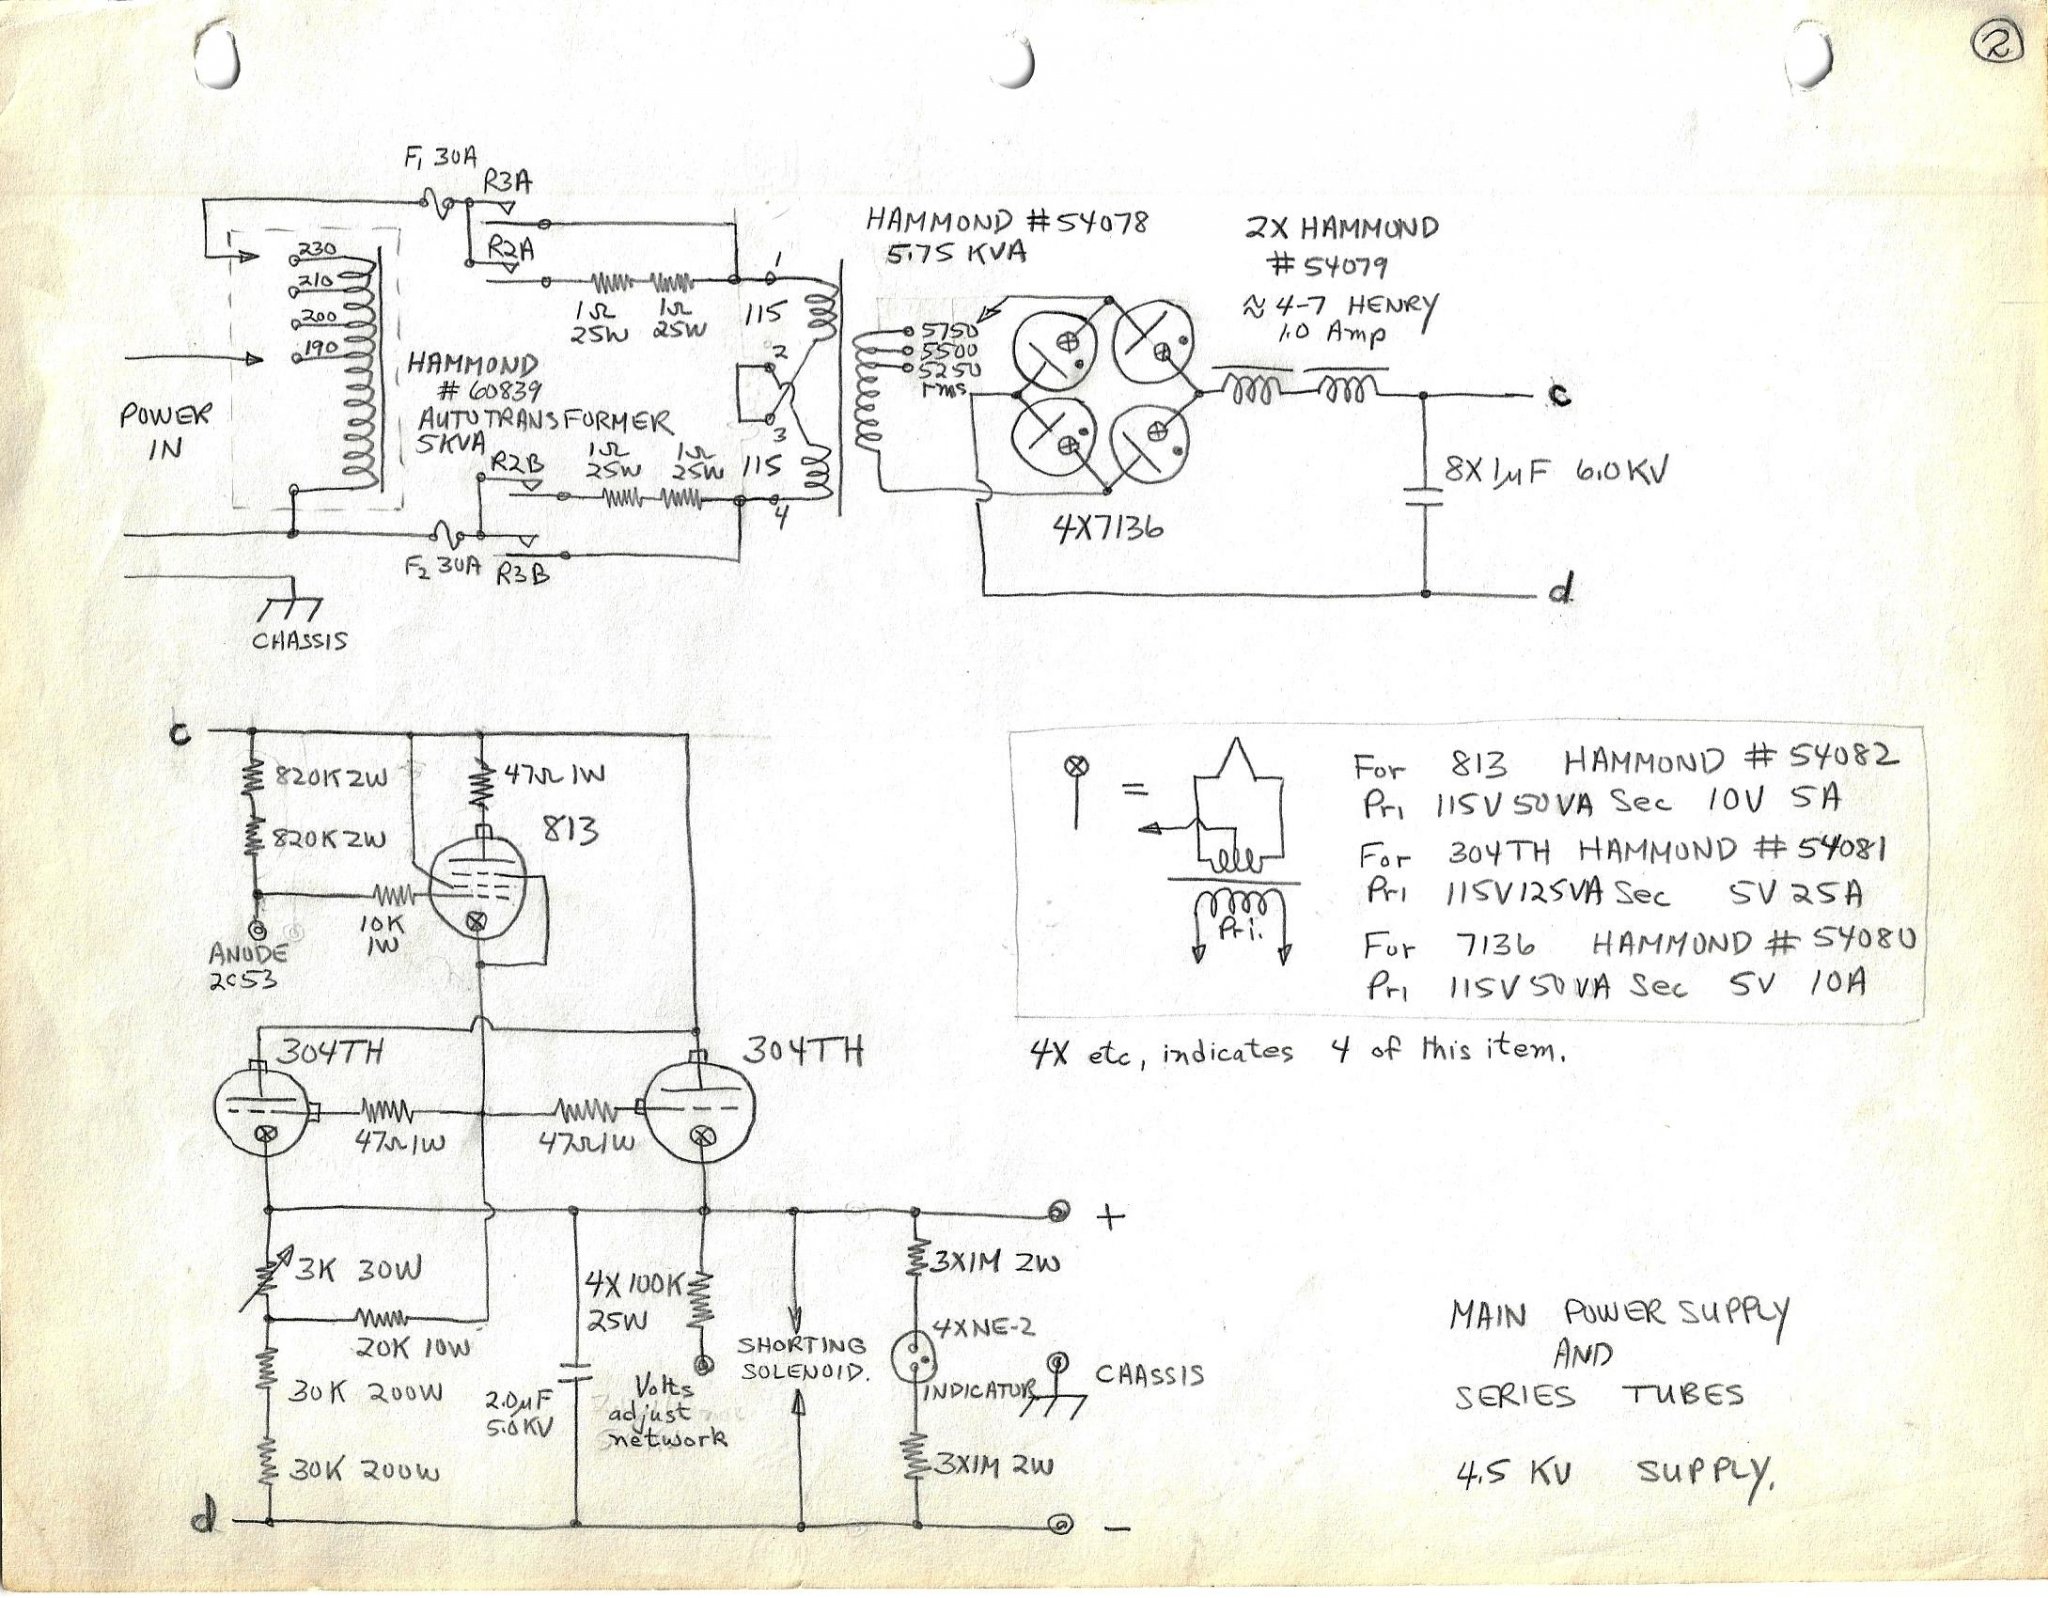 2
F1 30A
R3A
R2A
1Ω
25W
1Ω
25W
230
210
200
190
POWER
IN
HAMMOND
# 60839
AUTOTRANSFORMER
5KVA
R2B
1Ω
25W
1Ω
25W
F2 30A
R3B
CHASSIS
1
115
2
3
115
4
HAMMOND #54078
5.75 KVA
5750
5500
5250
rms
4X7136
2X HAMMOND
#54079
≈ 4-7 HENRY
1.0 Amp
c
8X1µF 6.0KV
d
c
820K2W
820K2W
47Ω1W
813
10K
1W
ANODE
2C53
304TH
304TH
47Ω1W
47Ω1W
+
3K 30W
20K 10W
30K 200W
30K 200W
2.0µF
5.0KV
4X100K
25W
Volts
adjust
network
SHORTING
SOLENOID.
3X1M 2W
4XNE-2
INDICATOR
3X1M 2W
CHASSIS
d
−
=
Pri.
For 813 HAMMOND # 54082
Pri 115V50VA Sec 10V 5A
For 304TH HAMMOND # 54081
Pri 115V125VA Sec 5V 25A
For 7136 HAMMOND # 54080
Pri 115V50VA Sec 5V 10A
4X etc, indicates 4 of this item.
MAIN POWER SUPPLY
AND
SERIES TUBES
4.5 KV SUPPLY.